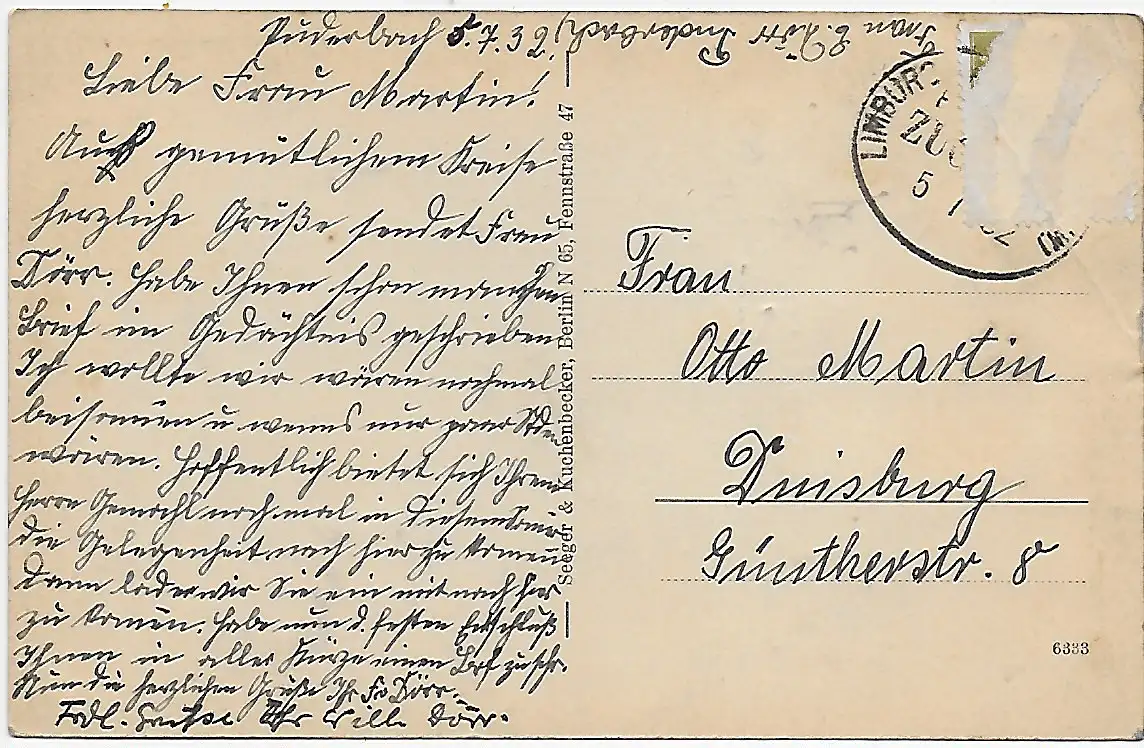 Puderbach 5.7.32.
Liebe Frau Martin!
Aus gemütlichem Kreise
herzliche Grüße sendet Frau
Dörr. Habe Ihnen schon manchen
Brief im Gedächtnis geschrieben
Ich wollte wir wären nochmal
beisamen u wenns nur paar Stden
wären. Hoffentlich bietet sich Ihrem
Herrn Gemahl nochmal in diesem
die Gelegenheit nach hier zu komen
Dann laden wir Sie ein mit nach hier
zu komen. Habe nun d. festen Entschluß
Ihnen in aller Kürze einen Brf zu schr.
Nun die herzlichen Grüße Ihr Fr Dörr.
Frdl. Grüße Ihr Will. Dörr.
Frau E. Dörr Puderbach
Seeger & Kuchenbecker, Berlin N 65, Fennstraße 47
LIMBURG
ZUG
5 7 32
Frau
Otto Martin
Duisburg
Güntherstr. 8
6333